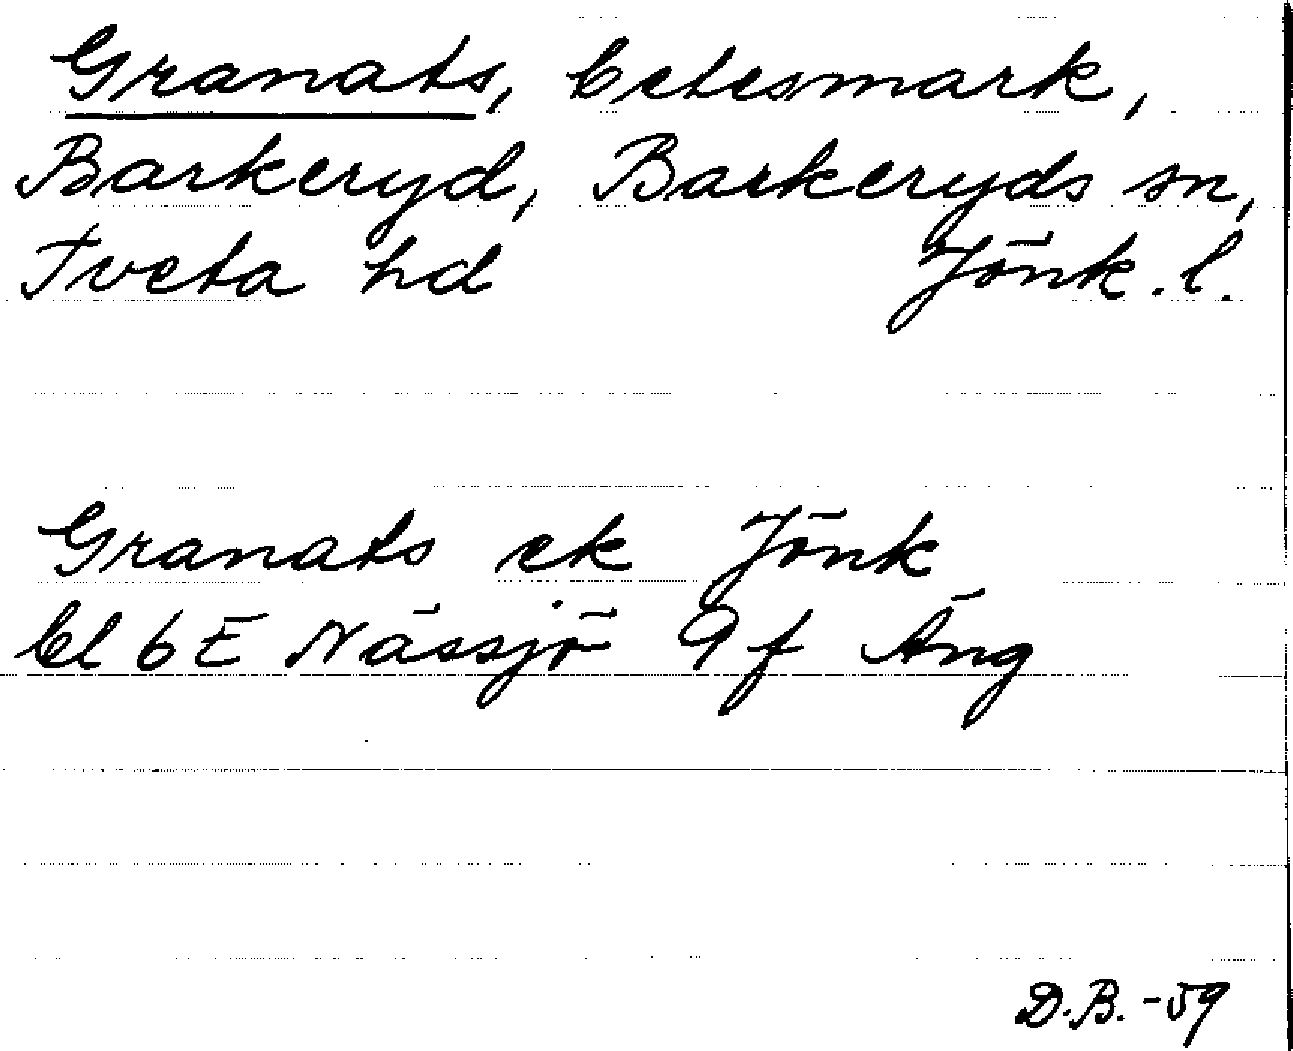 Granats, betesmark,
Barkeryd, Barkeryds sn,
Tveta hd Jönk. l.
Granats ek Jönk
bl 6 E Nässjö 9 f Äng
D.B. -59